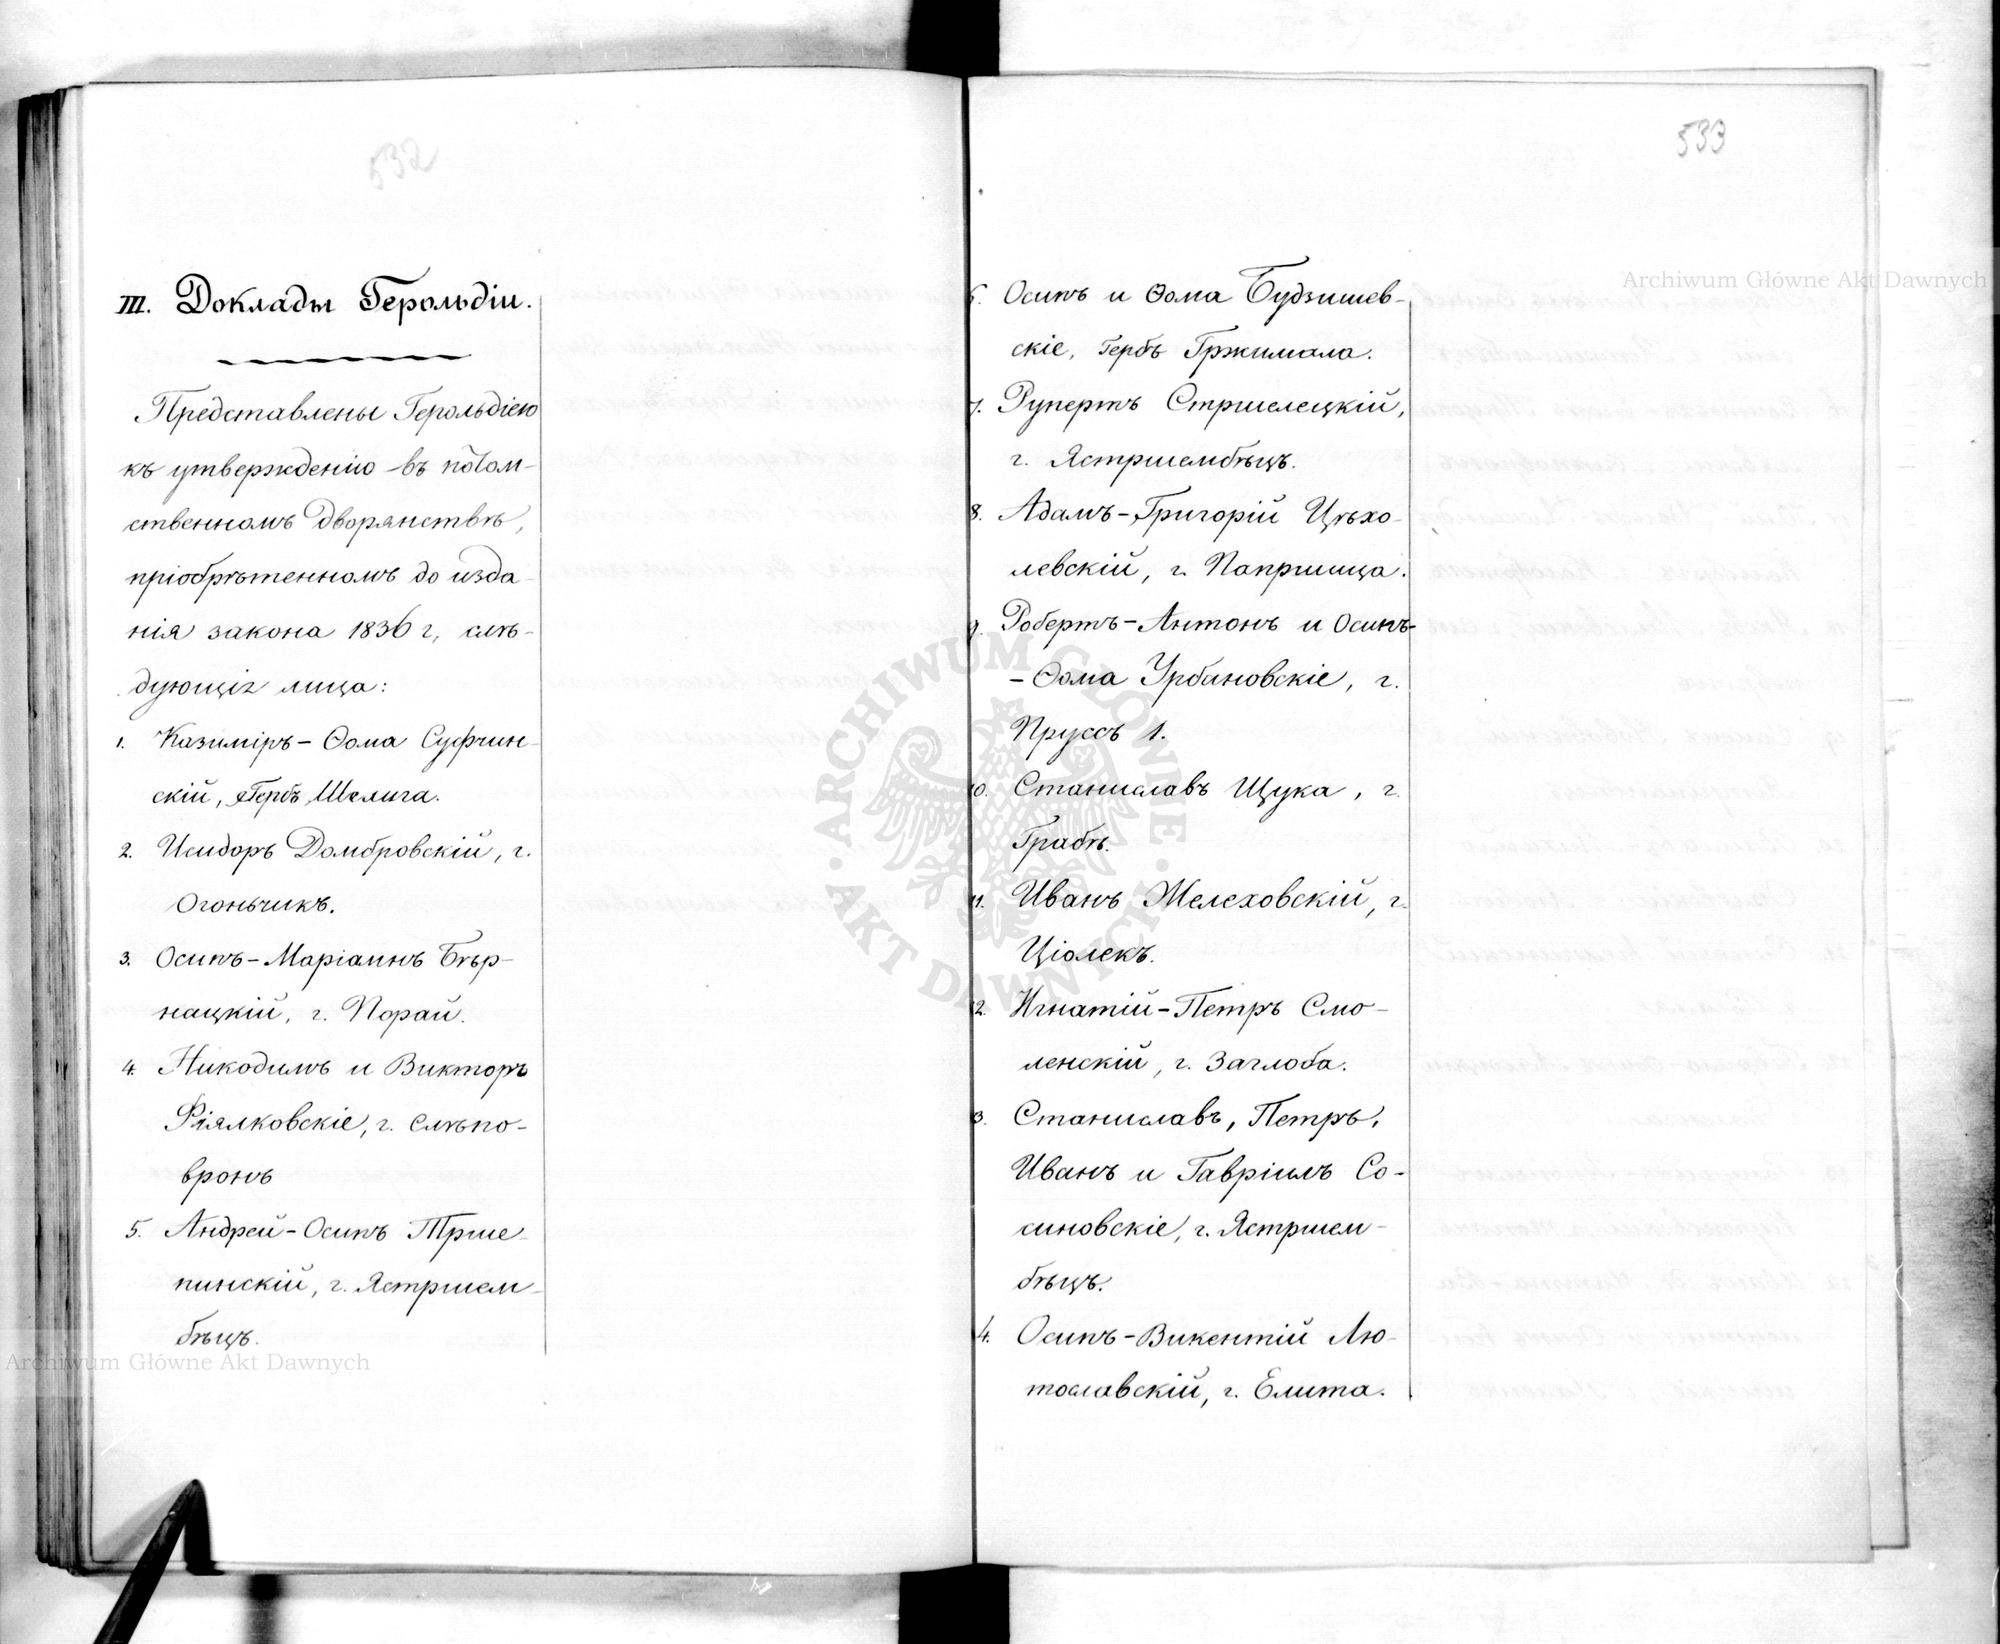 532
III. Доклады Герольдіи.
Представлены Герольдіею
къ утвержденію въ потом-
ственномъ дворянствѣ,
пріобрѣтенномъ до изда-
нія закона 1836 г, слѣ-
дующія лица:
1. Казиміръ-Ѳома Суфчин-
скій, Гербъ Шелига.
2. Исидоръ Домбровскій, г.
Огоньчикъ.
3. Осипъ-Маріаннъ Бѣр-
нацкій, г. Порай.
4. Никодимъ и Викторъ
Фіялковскіе, г. Слѣпо-
вронъ
5. Андрей-Осипъ Тршe-
пинскій, г. Ястршем-
бѣцъ.
Archiwum Główne Akt Dawnych
533
Archiwum Główne Akt Dawnych
6. Осипъ и Ѳома Будзишев-
скіе, Гербъ Гржимала.
7. Рупертъ Стршелецкій,
г. Ястршембѣцъ.
8. Адамъ-Григорій Цѣхо-
левскій, г. Папршица.
9. Робертъ-Антонъ и Осипъ-
-Ѳома Урбановскіе, г.
Пруссъ 1.
10. Станиславъ Щука, г.
Грабѣ.
11. Иванъ Желеховскій, г.
Ціолекъ.
12. Игнатій-Петръ Смо-
ленскій, г. Заглоба.
13. Станиславъ, Петръ,
Иванъ и Гавріилъ Со-
синовскіе, г. Ястршем-
бѣцъ.
14. Осипъ-Викентій Лю-
тославскій, г. Елита.
ARCHIWUM GŁÓWNE AKT DAWNYCH